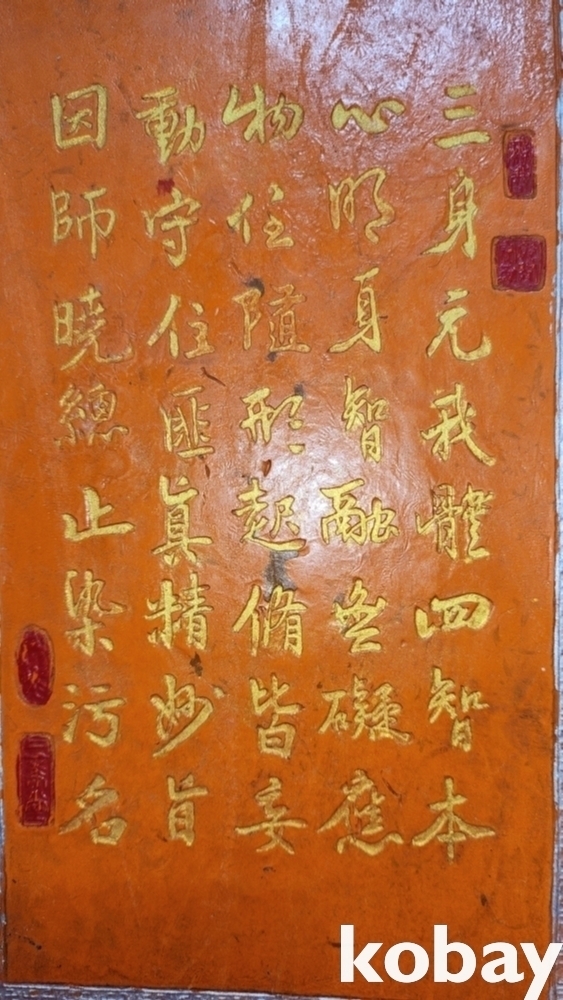 三身元我體四智本
心明身智融無礙應
物任隨形起脩皆妄
動守住匪真精妙旨
因師曉總止染污名
kobay